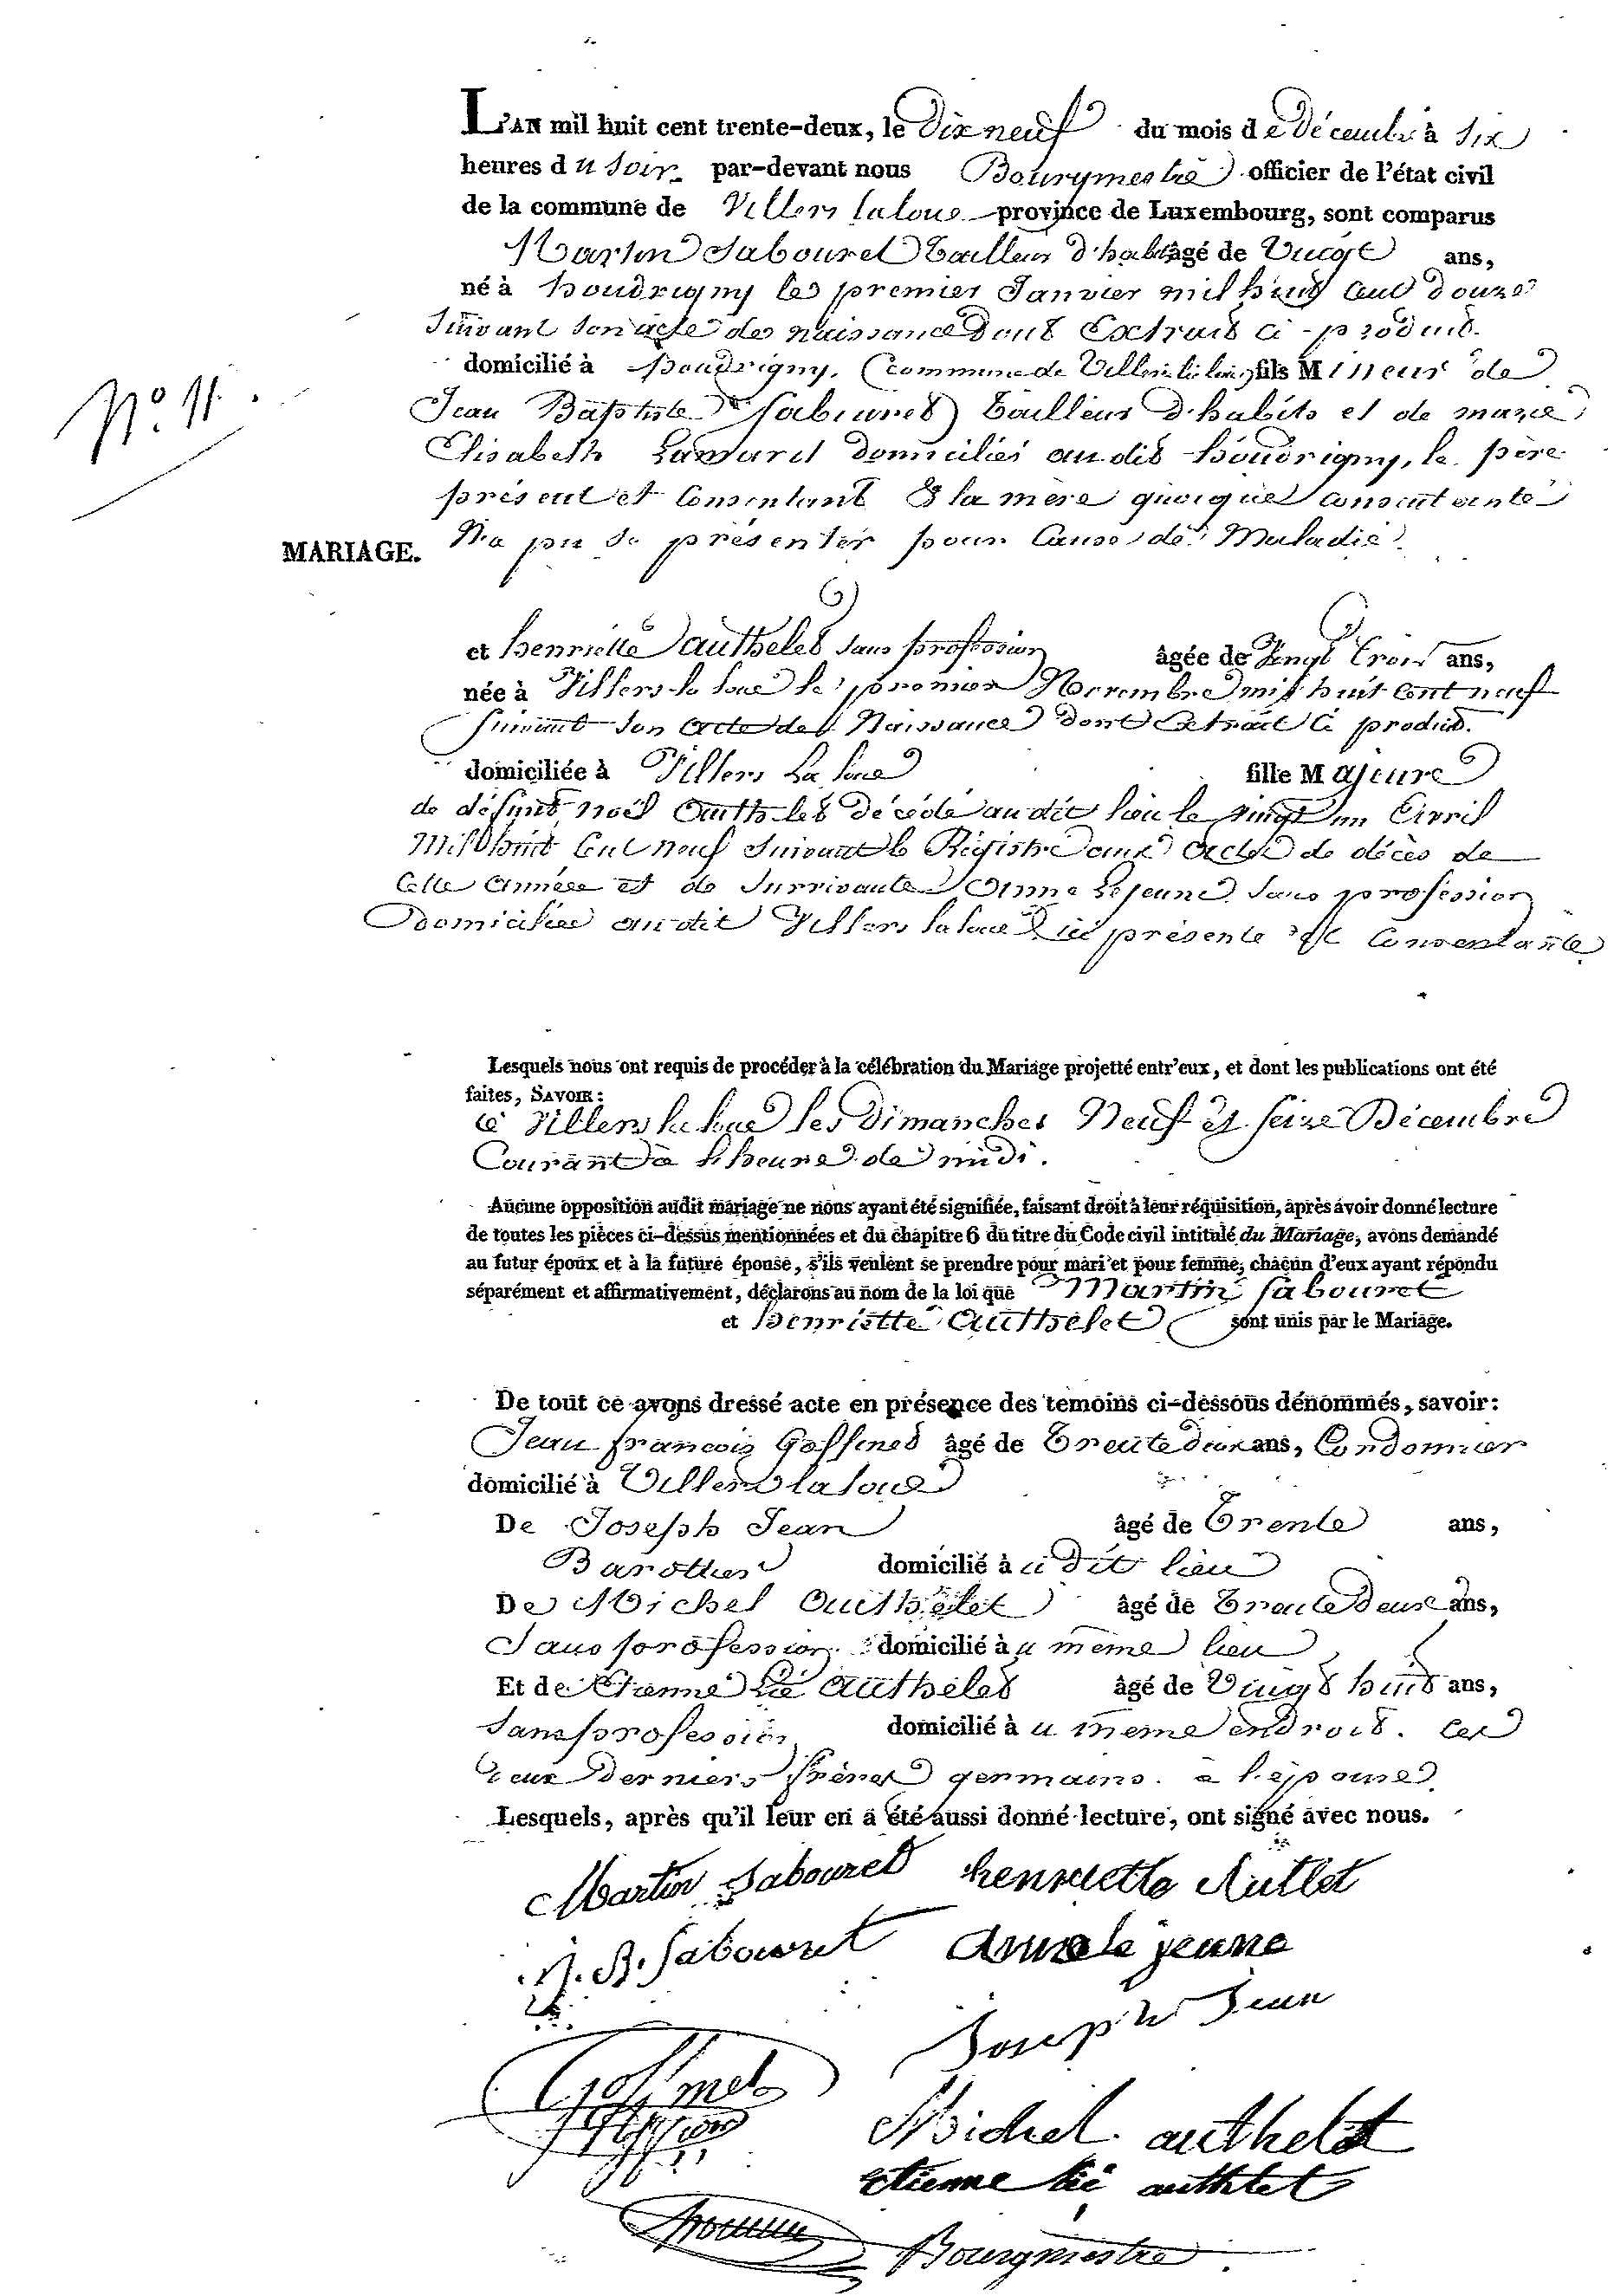 L'AN mil huit cent trente-deux, le Dix neuf du mois de Décembre à Six
heures du Soir par-devant nous Bourgmestre officier de l'état civil
de la commune de Villers laloue province de Luxembourg, sont comparus
Martin Sabouret Tailleur d'habits âgé de Vingt ans,
né à houdrigny le premier Janvier mil huit Cent douze
Suivant son acte de naissance dont Extrait ci-produit.
domicilié à houdrigny, (commune de Villers la loue) fils Mineur de
N° 11.
Jean Baptiste Sabouret Tailleur d'habits et de marie
Elisabeth Lamard domiciliés audit houdrigny, le père
présent et Consentant & la mère quoique consentante
N'a pu se présenter pour Cause de Maladie.
MARIAGE.
et henriette authelet sans profession âgée de Vingt Trois ans,
née à Villers la loue le premier Novembre mil huit cent neuf
suivant son acte de Naissance dont Extrait ci produit.
domiciliée à Villers La loue fille Majeure
de défunt noël Authelet décédé audit lieu le vingt un Avril
Mil huit Cent neuf suivant le Régistre aux Actes de décès de
Cette Année et de Survivante Anne Lejeune sans profession
domiciliée audit Villers laloue ici présente et Consentante
Lesquels nous ont requis de procéder à la célébration du Mariage projetté entr'eux, et dont les publications ont été
faites, SAVOIR:
à Villers la loue les Dimanches Neuf et Seize Décembre
Courant à l'heure de midi.
Aucune opposition audit mariage ne nous ayant été signifiée, faisant droit à leur réquisition, après avoir donné lecture
de toutes les pièces ci-dessus mentionnées et du chapitre 6 du titre du Code civil intitulé du Mariage, avons demandé
au futur époux et à la future épouse, s'ils veulent se prendre pour mari et pour femme; chacun d'eux ayant répondu
séparément et affirmativement, déclarons au nom de la loi que Martin Sabouret
et henriette Authelet sont unis par le Mariage.
De tout ce avons dressé acte en présence des temoins ci-dessous dénommés, savoir:
Jean françois Goffinet âgé de Trente deux ans, Cordonnier
domicilié à Villers laloue
De Joseph Jean âgé de Trente ans,
domicilié à u dit lieu
De Michel Authelet âgé de Trente deux ans,
Sans profession domicilié à u même lieu
Et de Etienne Lié Authelet âgé de Vingt huit ans,
Sans profession domicilié à u meme endroit. Ces
deux Derniers frères germains à l'épouse.
Lesquels, après qu'il leur en a été aussi donné lecture, ont signé avec nous.
Martin Sabouret henriette Autlet
J. B. Sabouret Anne le jeune
Joseph Jean
Goffinet
Michel authelet
etienne lié authlet
Bourgmestre